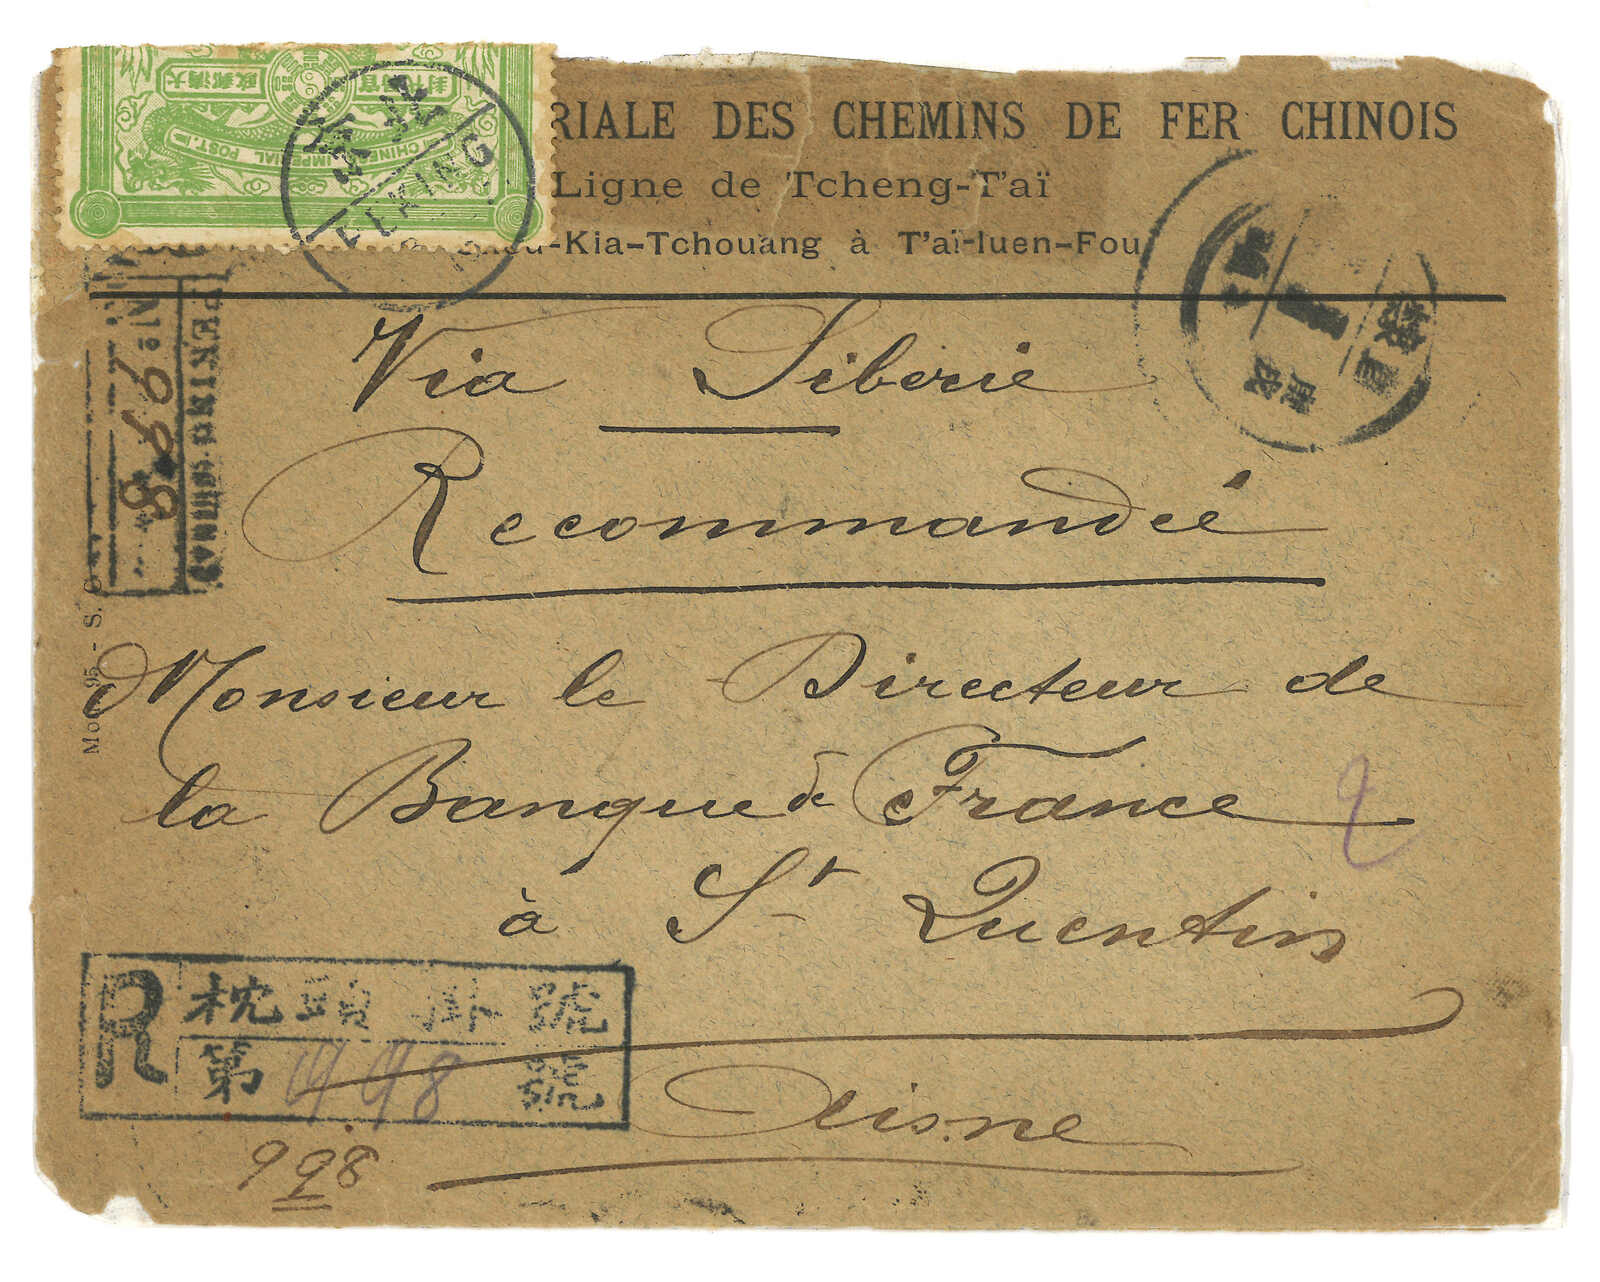 大清郵政 官局代封
CHINESE IMPERIAL POST.
PEKING
RIALE DES CHEMINS DE FER CHINOIS
Ligne de Tcheng-T'aï
-Kia-Tchouang à T'aï-Iuen-Fou
PEKING (CHINA)
No 998
Via Siberie
Recommandée
Monsieur le Directeur de
la Banque de France
à St Quentin
Aisne
R 枕頭掛號
第 448 號
998
2